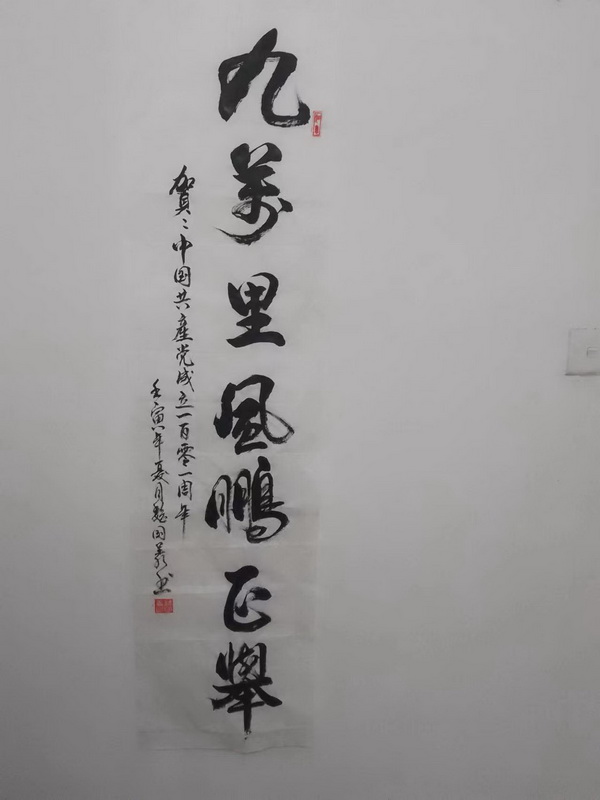 九萬里風鵬正舉
賀：中国共產党成立一百零一周年
壬寅年夏月 国義书